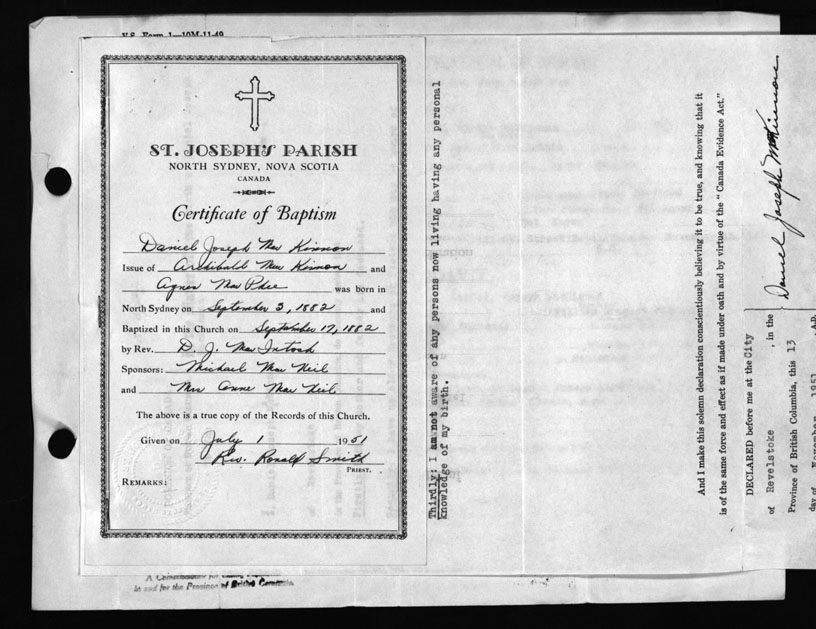 V.S. Form 1—10M-11-49
ST. JOSEPH'S PARISH
NORTH SYDNEY, NOVA SCOTIA
CANADA
Certificate of Baptism
Daniel Joseph Mac Kinnon
Issue of Archibald Mac Kinnon and
Agnes Mac Phee was born in
North Sydney on September 3, 1882 and
Baptized in this Church on September 17, 1882
by Rev. D. J. Mac Intosh
Sponsors: Michael Mac Neil
and Mrs Anne Mac Neil
The above is a true copy of the Records of this Church.
Given on July 1 1951
Rev. Ronald Smith
PRIEST.
REMARKS:
A Commissioner for
in and for the Province of British Columbia.
Thirdly: I am not aware of any persons now living having any personal
knowledge of my birth.
And I make this solemn declaration conscientiously believing it to be true, and knowing that it
is of the same force and effect as if made under oath and by virtue of the "Canada Evidence Act."
DECLARED before me at the City
of Revelstoke , in the
Province of British Columbia, this 13
day of November 1951 , A.D.
Daniel Joseph McKinnon